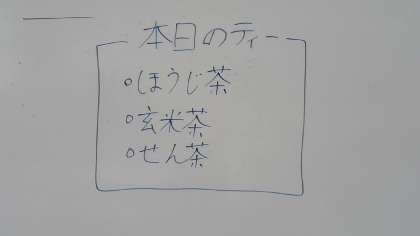 本日のティー
○ほうじ茶
○玄米茶
○せん茶